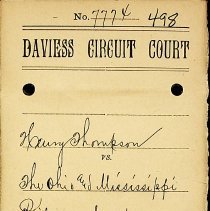 No. 7774 498
DAVIESS CIRCUIT COURT
Henry Thompson
VS.
The Ohio & Mississippi